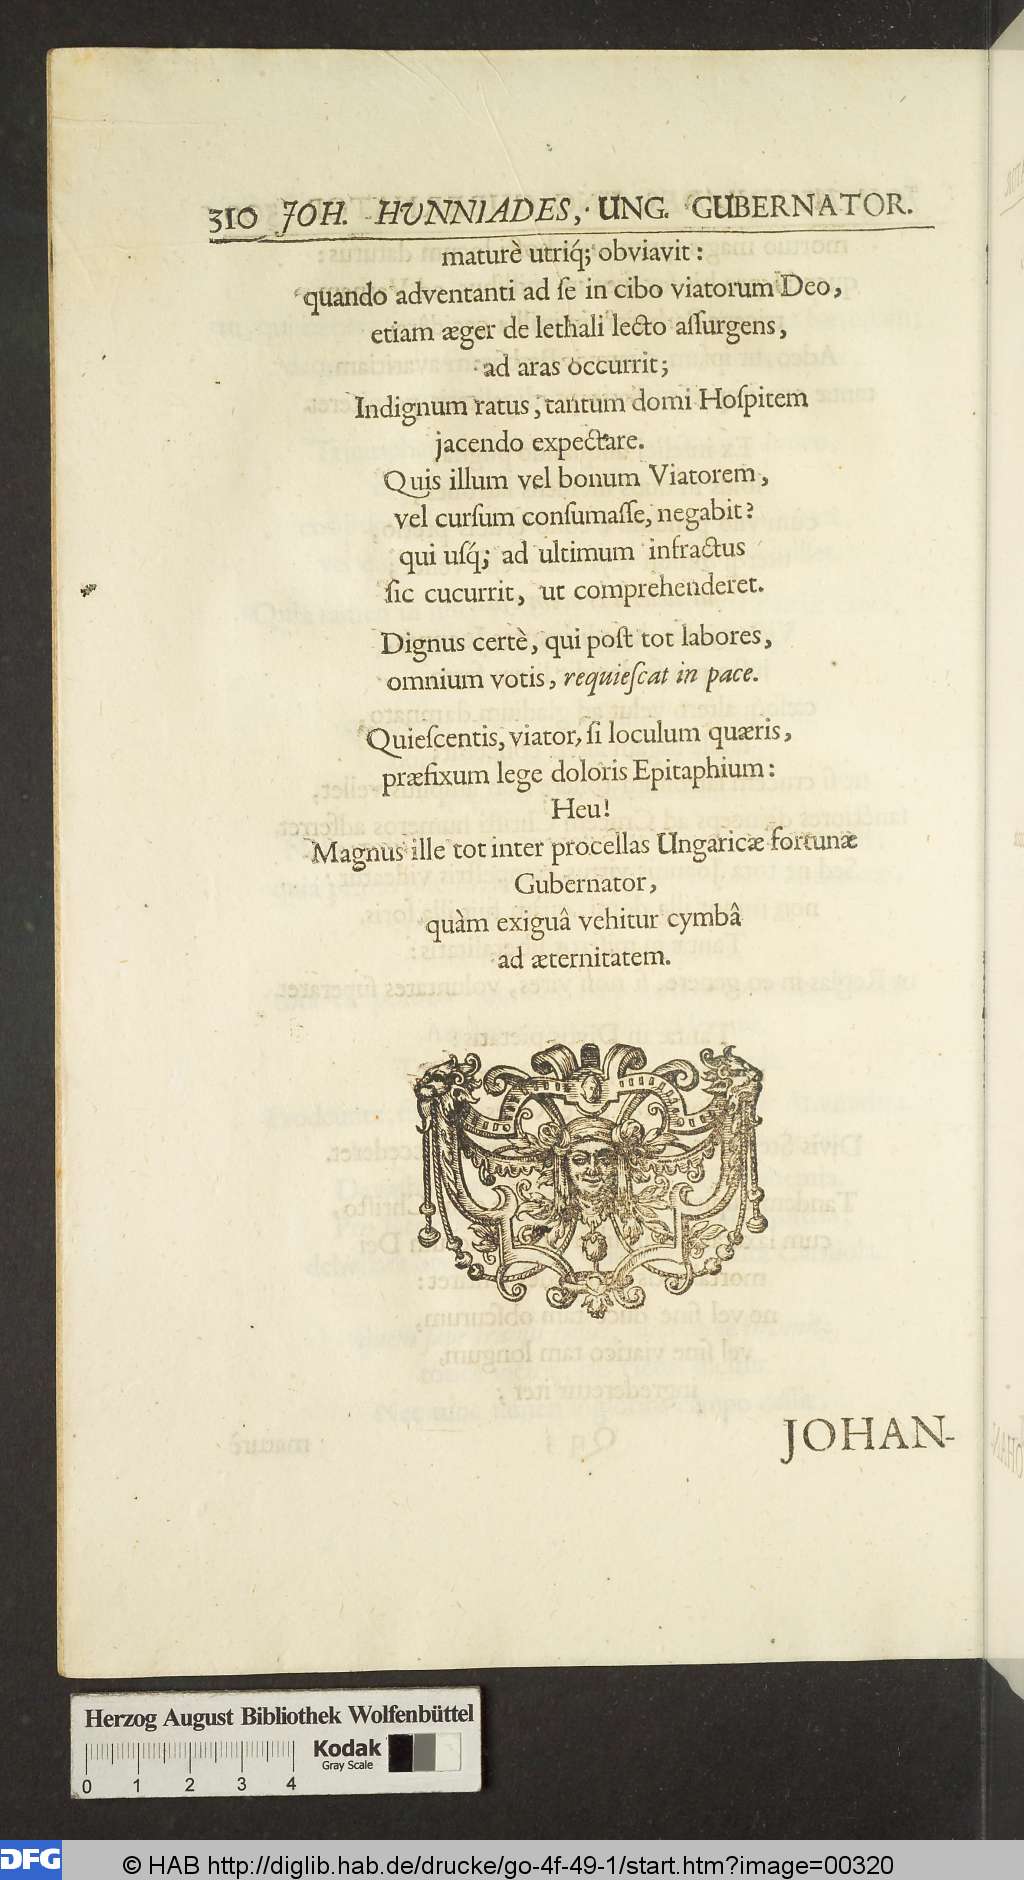 310 JOH. HUNNIADES, UNG. GUBERNATOR.
maturè utriq́; obviavit:
quando adventanti ad ſe in cibo viatorum Deo,
etiam æger de lethali lecto aſſurgens,
ad aras occurrit;
Indignum ratus, tantum domi Hoſpitem
jacendo expectare.
Quis illum vel bonum Viatorem,
vel curſum conſumaſſe, negabit?
qui uſq́; ad ultimum infractus
ſic cucurrit, ut comprehenderet.
Dignus certè, qui poſt tot labores,
omnium votis, requieſcat in pace.
Quieſcentis, viator, ſi loculum quæris,
præfixum lege doloris Epitaphium:
Heu!
Magnus ille tot inter procellas Ungaricæ fortunæ
Gubernator,
quàm exiguâ vehitur cymbâ
ad æternitatem.
JOHAN-
Herzog August Bibliothek Wolfenbüttel
Kodak
Gray Scale
0 1 2 3 4
DFG
© HAB http://diglib.hab.de/drucke/go-4f-49-1/start.htm?image=00320